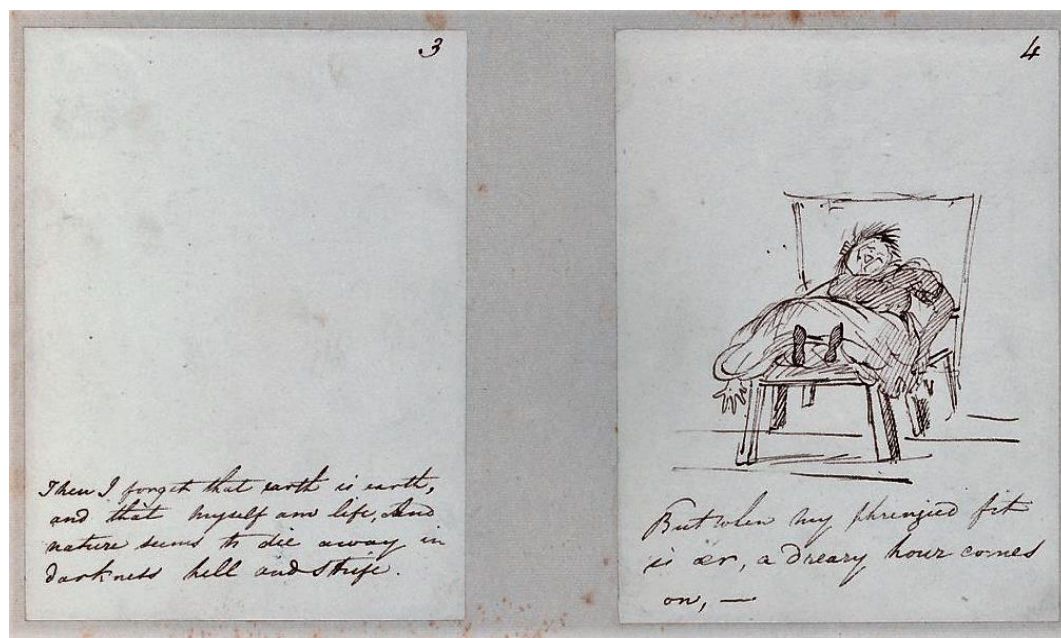 3
Then I forget that earth is earth,
and that myself am life, And
nature seems to die away in
darkness hell and strife.
4
But when my phrenzied fit
is oer, a dreary hour comes
on, —